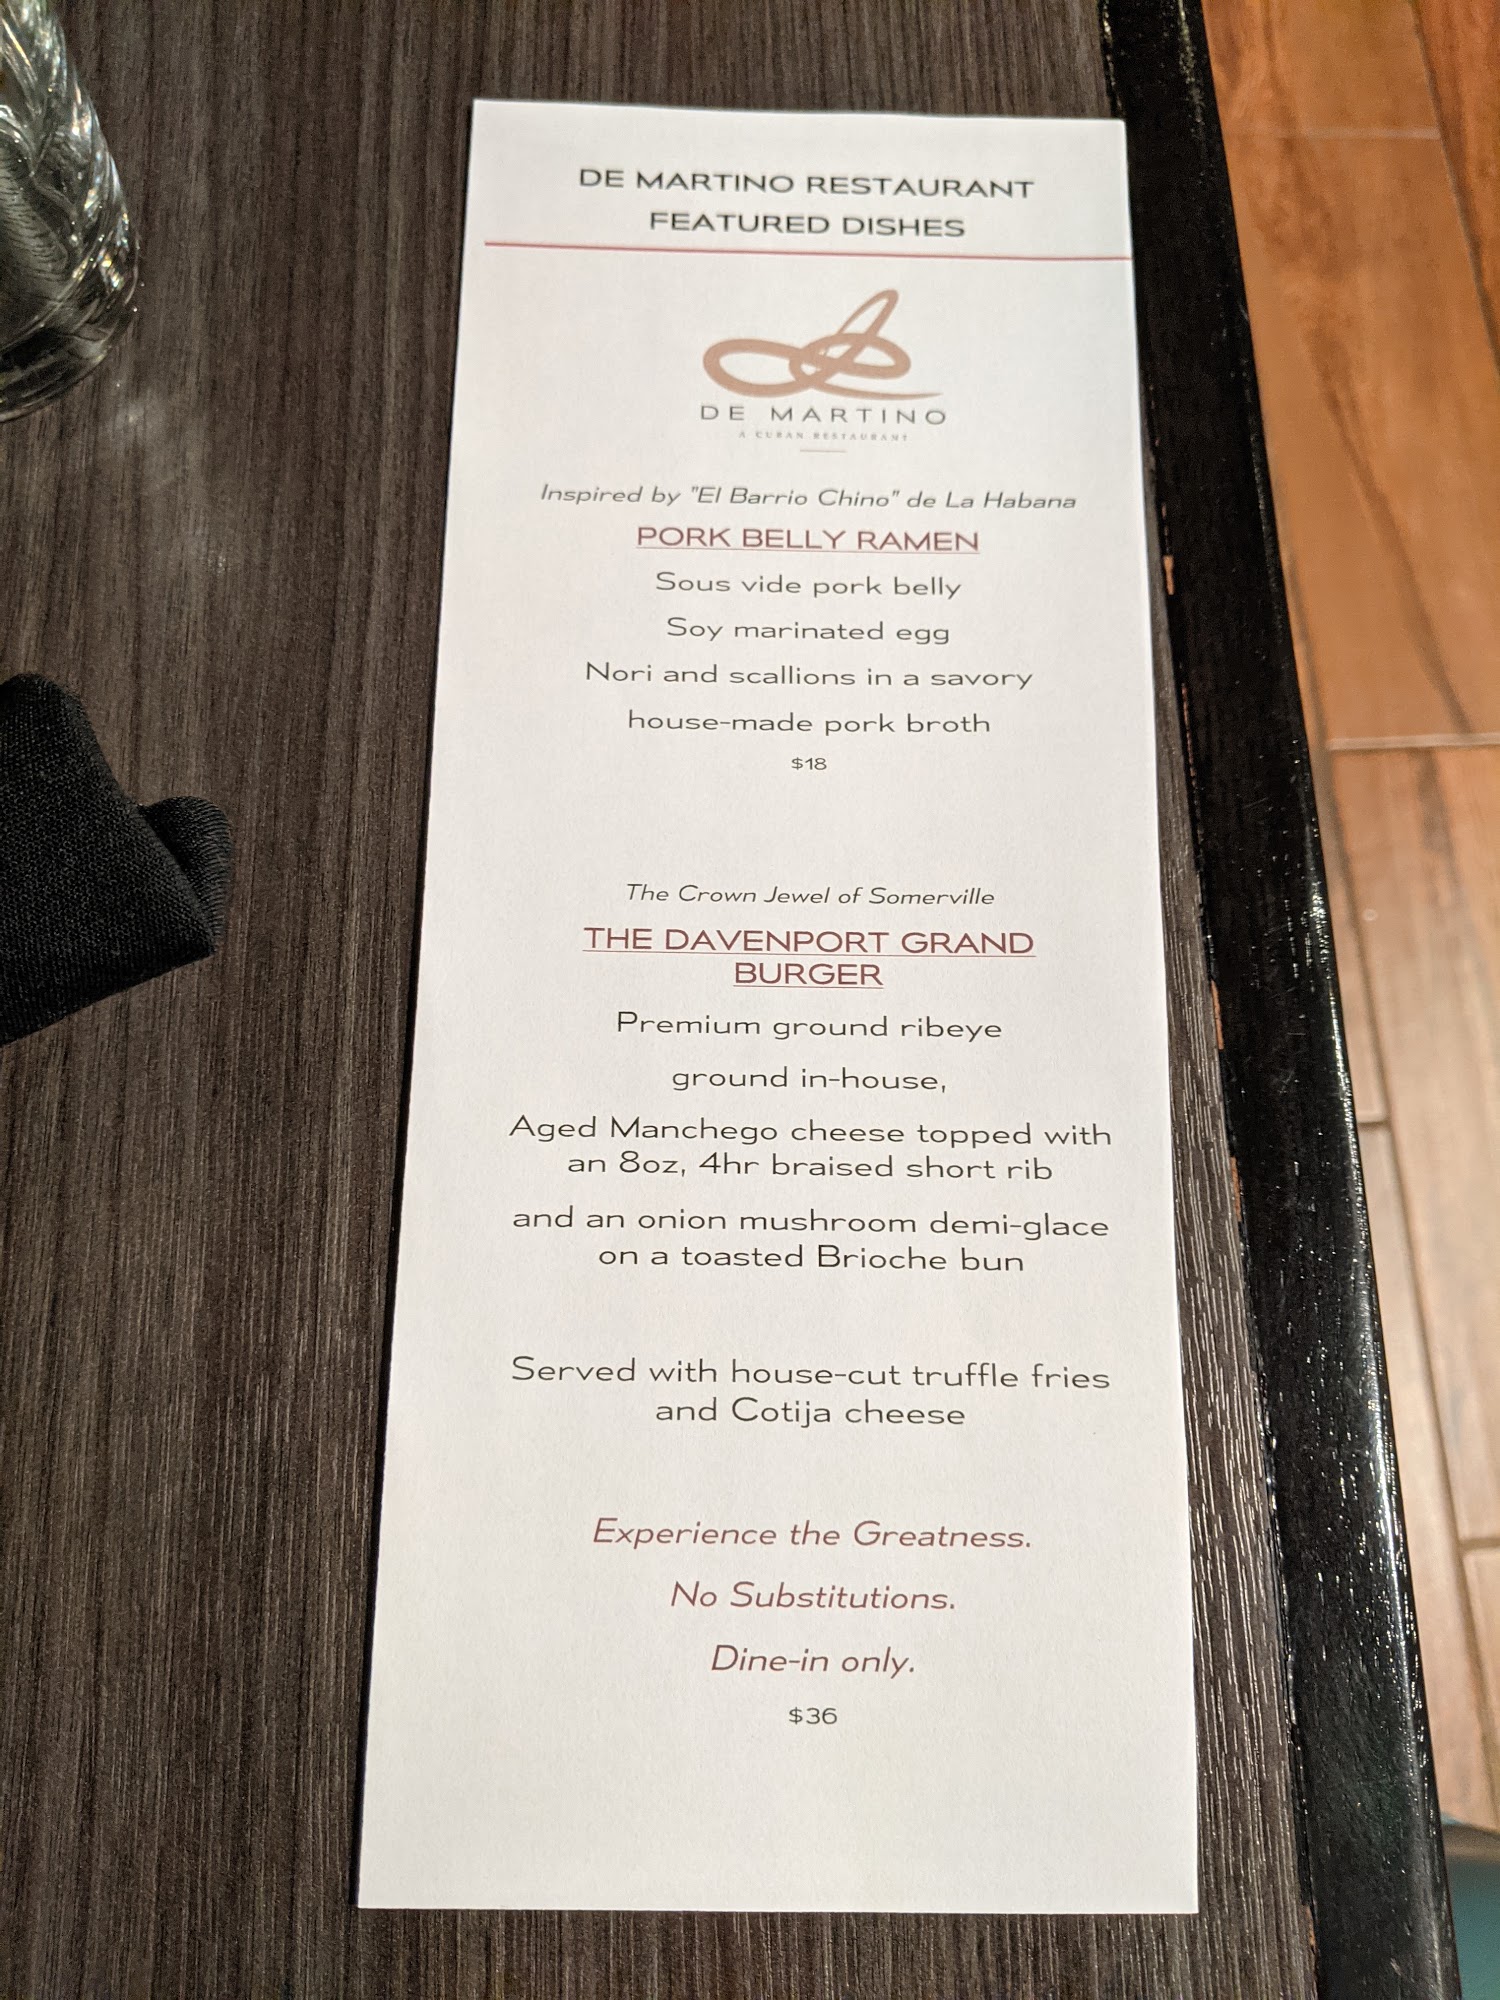 DE MARTINO RESTAURANT
FEATURED DISHES
DE MARTINO
A CUBAN RESTAURANT
Inspired by "El Barrio Chino" de La Habana
PORK BELLY RAMEN
Sous vide pork belly
Soy marinated egg
Nori and scallions in a savory
house-made pork broth
$18
The Crown Jewel of Somerville
THE DAVENPORT GRAND
BURGER
Premium ground ribeye
ground in-house,
Aged Manchego cheese topped with
an 8oz, 4hr braised short rib
and an onion mushroom demi-glace
on a toasted Brioche bun
Served with house-cut truffle fries
and Cotija cheese
Experience the Greatness.
No Substitutions.
Dine-in only.
$36